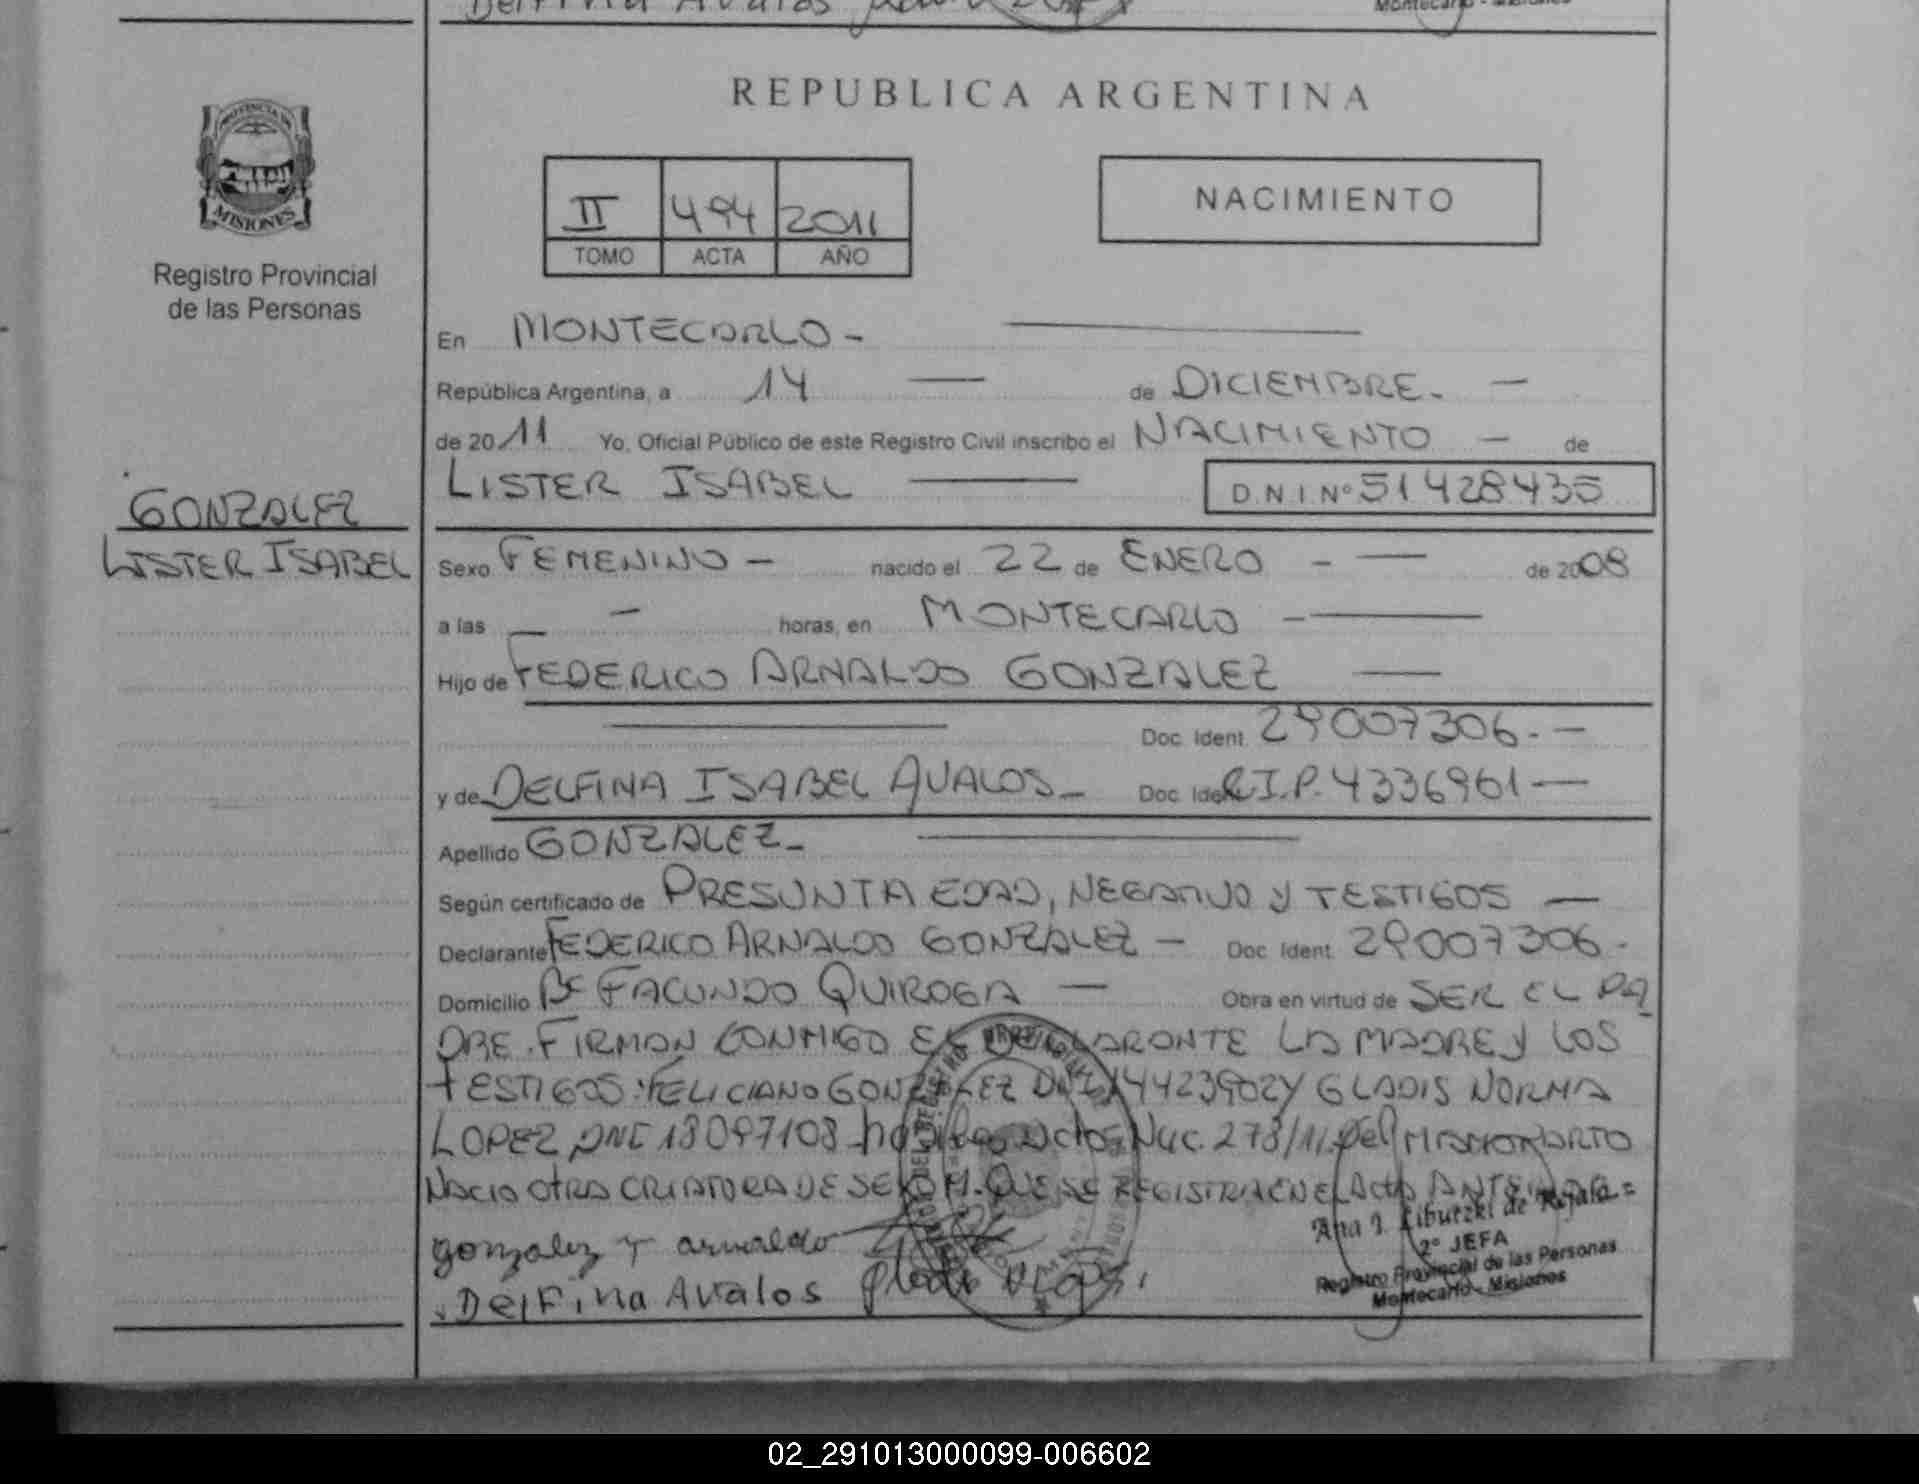 Delfina Avalos
Montecarlo - Misiones
REPUBLICA ARGENTINA
PROVINCIA DE
MISIONES
Registro Provincial
de las Personas
II 494 2011
TOMO ACTA AÑO
NACIMIENTO
En MONTECARLO -
República Argentina, a 14 de DICIEMBRE. -
de 2011 Yo, Oficial Público de este Registro Civil inscribo el NACIMIENTO - de
LISTER ISABEL D.N.I.Nº 51428435
GONZALEZ
LISTER ISABEL
Sexo FEMENINO - nacido el 22 de ENERO - de 2008
a las - horas, en MONTECARLO -
Hijo de FEDERICO ARNALDO GONZALEZ
Doc. Ident. 29007306. -
y de DELFINA ISABEL AVALOS - Doc. Ident. C.I.P. 4336961 -
Apellido GONZALEZ -
Según certificado de PRESUNTA EDAD, NEGATIVO Y TESTIGOS -
Declarante FEDERICO ARNALDO GONZALEZ - Doc. Ident. 29007306.-
Domicilio Bº FACUNDO QUIROGA - Obra en virtud de SER EL PA
DRE. FIRMAN CONMIGO EL DECLARANTE LA MADRE Y LOS
TESTIGOS: FELICIANO GONZALEZ DNI 14423902 Y GLADIS NORMA
LOPEZ DNI 18097108 Nac. 278/11. Del MISMO PARTO
NACIO OTRA CRIATURA DE SEXO M. QUE SE REGISTRA EN EL ACTA ANTERIOR =
gonzalez F arnaldo
Delfina Avalos
Ana I. Libutzki de
2º JEFA
Registro Provincial de las Personas
Montecarlo - Misiones
02_291013000099-006602